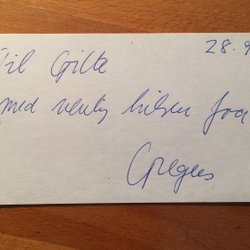 28.9
Til Gitte
med venlig hilsen fra
Gregers